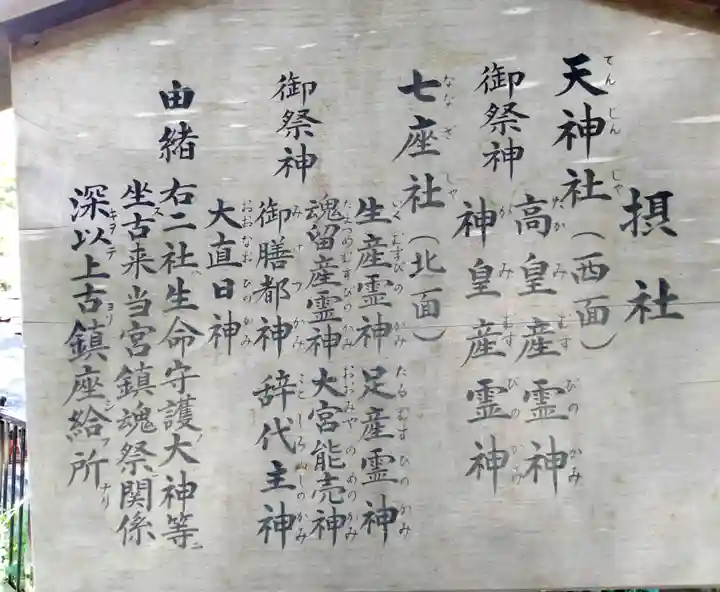 摂社
天神社（西面）
御祭神 高皇産霊神
神皇産霊神
七座社（北面）
御祭神 生産霊神 足産霊神
魂留産霊神 大宮能売神
御膳都神 辞代主神
大直日神
由緒 右二社ハ生命守護ノ大神等ニ
坐ス古来当宮鎮魂祭ニ関係
深キヲ以テ上古ヨリ鎮座シ給フ所ナリ